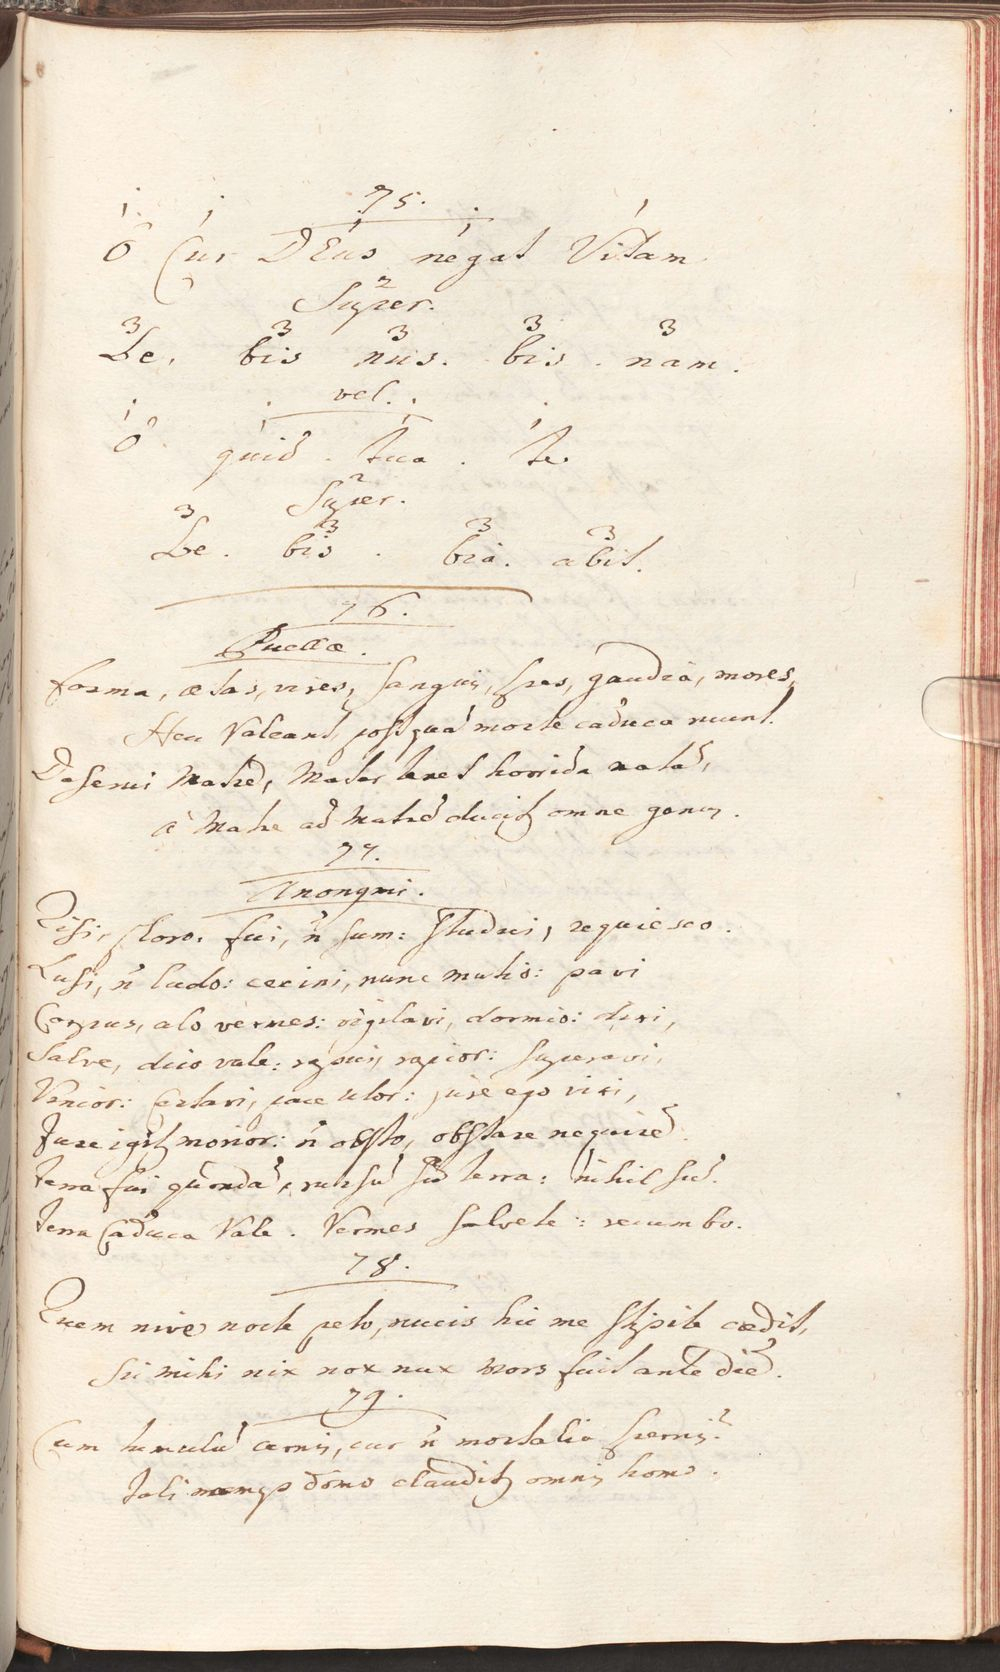 75.
1 1 1 1 1
O Cur DEus negat Vitam
2
Super.
3 3 3 3 3
Be. bis nus. bis. nam.
vel.
1 1 1 1
O quid. tua. te.
2
Super.
3 3 3 3
Be. bis. bia. abit.
76.
Puellæ.
forma, ætas, vires, sanguis, spes, gaudia, mores,
Heu Valeant, postquā morte caduca ruunt.
Deserui Matrē, Mater tenet horrida natā,
a Matre ad Matrē ducitʒ omne genus.
77.
Anonymi.
Risi, ploro. fui, n̄ sum: studui, requiesco.
Lusi, n̄ ludo: cecini, nunc mutio: pavi
Corpus, alo vermes: vigilavi, dormio: dixi,
Salve, dico vale: rapui, rapior: superavi,
Vincior: Certavi, pace utor: jure ego vixi,
Jure igitʒ morior: n̄ obsto, obstare nequirē.
terra fui quondā, rursū sū terra: nihil sū.
terra Caduca Vale. Vermes salvete: recumbo.
78.
Quem nive nocte peto, nucis hic me stipite cædit,
sic mihi nix nox nux mors fuit ante diē.
79.
Cum tumulū cernis, cur n̄ mortalia spernis?
tali domo claudilʒ omnis homo.